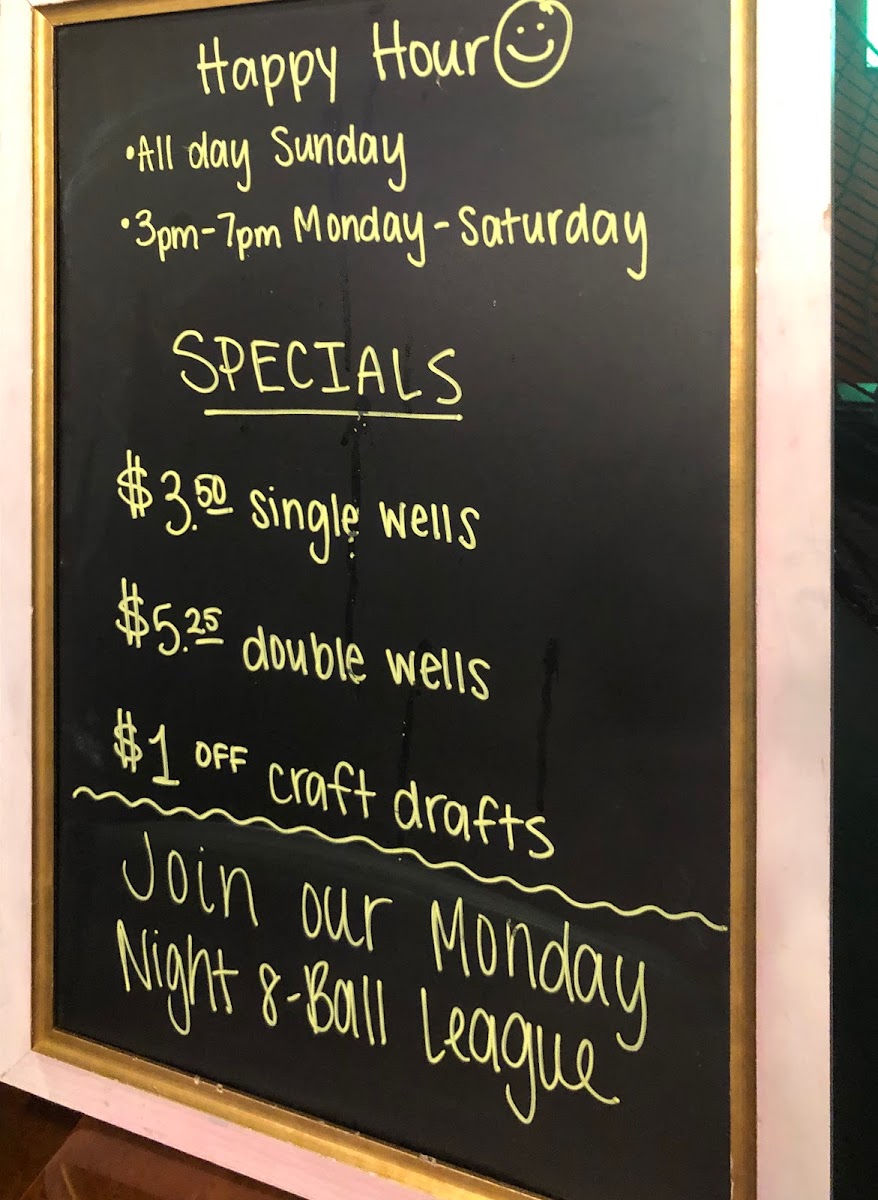 Happy Hour
•All day Sunday
•3pm-7pm Monday-Saturday
SPECIALS
$3.50 single wells
$5.25 double wells
$1 OFF craft drafts
Join our Monday
Night 8-Ball League